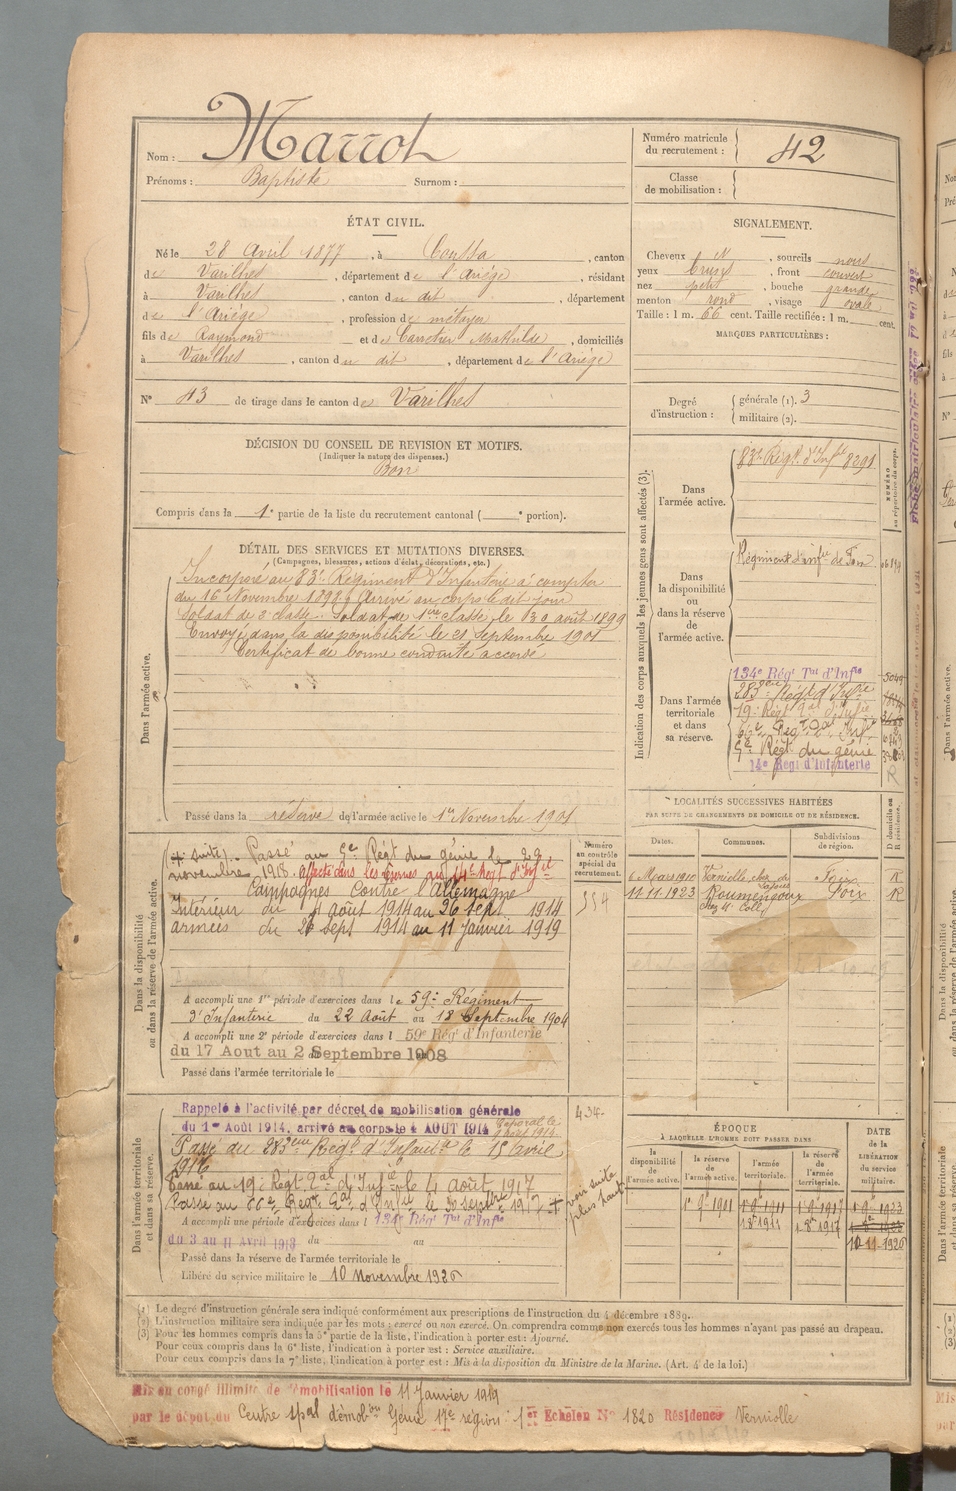 Nom : Marrot
Prénoms : Baptiste Surnom :
Numéro matricule du recrutement : 42
Classe de mobilisation :
ÉTAT CIVIL.
Né le 28 Avril 1877, à Coussa, canton
de Varilhes, département de l'Ariège, résidant
à Varilhes, canton du dit, département
de l'Ariège, profession de métayer
fils de Raymond et de Carretier Mathilde, domiciliés
à Varilhes, canton du dit, département de l'Ariège
N° 43 de tirage dans le canton de Varilhes
SIGNALEMENT.
Cheveux N, sourcils noirs
yeux bruns, front couvert
nez petit, bouche grande
menton rond, visage ovale
Taille : 1 m. 66 cent. Taille rectifiée : 1 m. cent.
MARQUES PARTICULIÈRES :
Degré d'instruction :
générale (1). 3
militaire (2).
DÉCISION DU CONSEIL DE REVISION ET MOTIFS.
(Indiquer la nature des dispenses.)
Bon
Compris dans la 1e partie de la liste du recrutement cantonal ( e portion).
DÉTAIL DES SERVICES ET MUTATIONS DIVERSES.
(Campagnes, blessures, actions d'éclat, décorations, etc.)
Dans l'armée active.
Incorporé au 83e Régiment d'Infanterie à compter
du 16 Novembre 1898, Arrivé au corps le dit jour
Soldat de 2e classe. Soldat de 1ère classe, le 30 août 1899
Envoyé dans la disponibilité le 21 Septembre 1901
Certificat de bonne conduite accordé
Passé dans la réserve de l'armée active le 1er Novembre 1901
Indication des corps auxquels les jeunes gens sont affectés (3).
NUMÉRO au répertoire du corps.
Dans l'armée active.
83e Régt. d'Infie 8291
Dans la disponibilité ou dans la réserve de l'armée active.
Régiment d'infie de Foix
Dans l'armée territoriale et dans sa réserve.
134e Régt Tal d'Infie
283eme Régt d'Infie
19e Régt Tal d'Infie
66e Régt Tal Infie
5e Régt du génie
14e Régt d'Infanterie
R
LOCALITÉS SUCCESSIVES HABITÉES
PAR SUITE DE CHANGEMENTS DE DOMICILE OU DE RÉSIDENCE.
Dates. Communes. Subdivisions de région. D domicile ou R résidence.
6 Mars 1910 Verniolle, chez de Foix R
11.11.1923 Roumengoux Foix R
Dans la disponibilité ou dans la réserve de l'armée active.
Numéro au contrôle spécial du recrutement.
554
(+ suite). Passé au 5e Régt du génie le 29
novembre 1918. affecté dans les réserves au 14e Régt d'Infie
Campagnes contre l'Allemagne
Intérieur du 4 août 1914 au 26 sept 1914
armées du 26 sept 1914 au 11 janvier 1919
A accompli une 1re période d'exercices dans le 59e Régiment
d'Infanterie du 22 Août au 18 Septembre 1904
A accompli une 2e période d'exercices dans l 59e Régt d'Infanterie
du 17 Aout au 2 Septembre 1908
Passé dans l'armée territoriale le
Dans l'armée territoriale et dans sa réserve.
434
Rappelé à l'activité par décret de mobilisation générale
du 1er Août 1914, arrivé au corps le 4 AOUT 1914 Caporal le
Passé au 283eme Régt d'Infanterie le 15 avril
1916
Passé au 19e Régt Tal d'Infie le 4 août 1917
Passé au 66e Régt Tal d'Infie le 30 septbre 1917 +
voir suite plus haut
A accompli une période d'exercices dans l 134e Régt Tal d'Infie
du 3 au 11 Avril 1913 du au
Passé dans la réserve de l'armée territoriale le
Libéré du service militaire le 10 novembre 1926
ÉPOQUE
À LAQUELLE L'HOMME DOIT PASSER DANS
la disponibilité de l'armée active. la réserve de l'armée active. l'armée territoriale. la réserve de l'armée territoriale.
DATE de la LIBÉRATION du service militaire.
1-9bre 1901 1-9bre 1911 1-9bre 1917 1-9bre 1923
1 8bre 1911 1-8bre 1917
10-11-1926
(1) Le degré d'instruction générale sera indiqué conformément aux prescriptions de l'instruction du 4 décembre 1889.
(2) L'instruction militaire sera indiquée par les mots : exercé ou non exercé. On comprendra comme non exercés tous les hommes n'ayant pas passé au drapeau.
(3) Pour les hommes compris dans la 5e partie de la liste, l'indication à porter est : Ajourné.
Pour ceux compris dans la 6e liste, l'indication à porter est : Service auxiliaire.
Pour ceux compris dans la 7e liste, l'indication à porter est : Mis à la disposition du Ministre de la Marine. (Art. 4 de la loi.)
Mis en congé illimité de démobilisation le 11 Janvier 1919
par le dépôt du Centre spal démobon Génie 17e région : 1er Echelon N° 1820 Résidence Verniolle